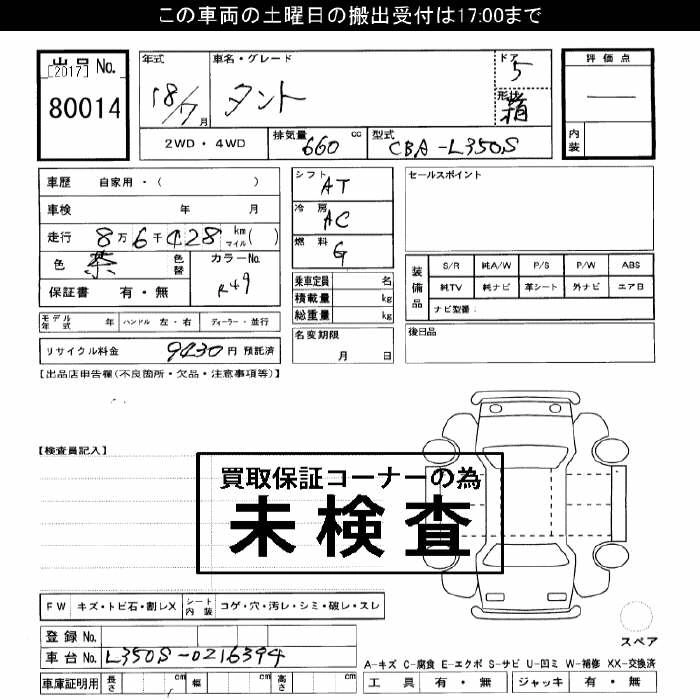 この車両の土曜日の搬出受付は17:00まで
出品 No.
[2017]
80014
年式
18/7 月
車名・グレード
タント
ドア
5
形状
箱
評価点
—
内装
2WD・4WD
排気量
660 cc
型式
CBA-L350S
車歴 自家用・( )
車検 年 月
走行 8万6千428 km マイル( )
色 茶 色替
カラーNo.
R49
保証書 有・無
シフト
AT
冷房
AC
燃料
G
乗車定員 名
積載量 kg
総重量 kg
セールスポイント
装備品
S/R 純A/W P/S P/W ABS
純TV 純ナビ 革シート 外ナビ エアB
ナビ型番:
モデル年式 年 ハンドル 左・右 ディーラー・並行
名変期限
月 日
後日品
リサイクル料金 9430 円 預託済
【出品店申告欄(不良箇所・欠品・注意事項等)】
【検査員記入】
買取保証コーナーの為
未検査
FW キズ・トビ石・割レX シート内装 コゲ・穴・汚レ・シミ・破レ・スレ
登録 No.
車台 No. L350S-0216394
車庫証明用 長さ cm 幅 cm 高さ cm
スペア
A-キズ C-腐食 E-エクボ S-サビ U-凹ミ W-補修 XX-交換済
工具 有・無 ジャッキ 有・無